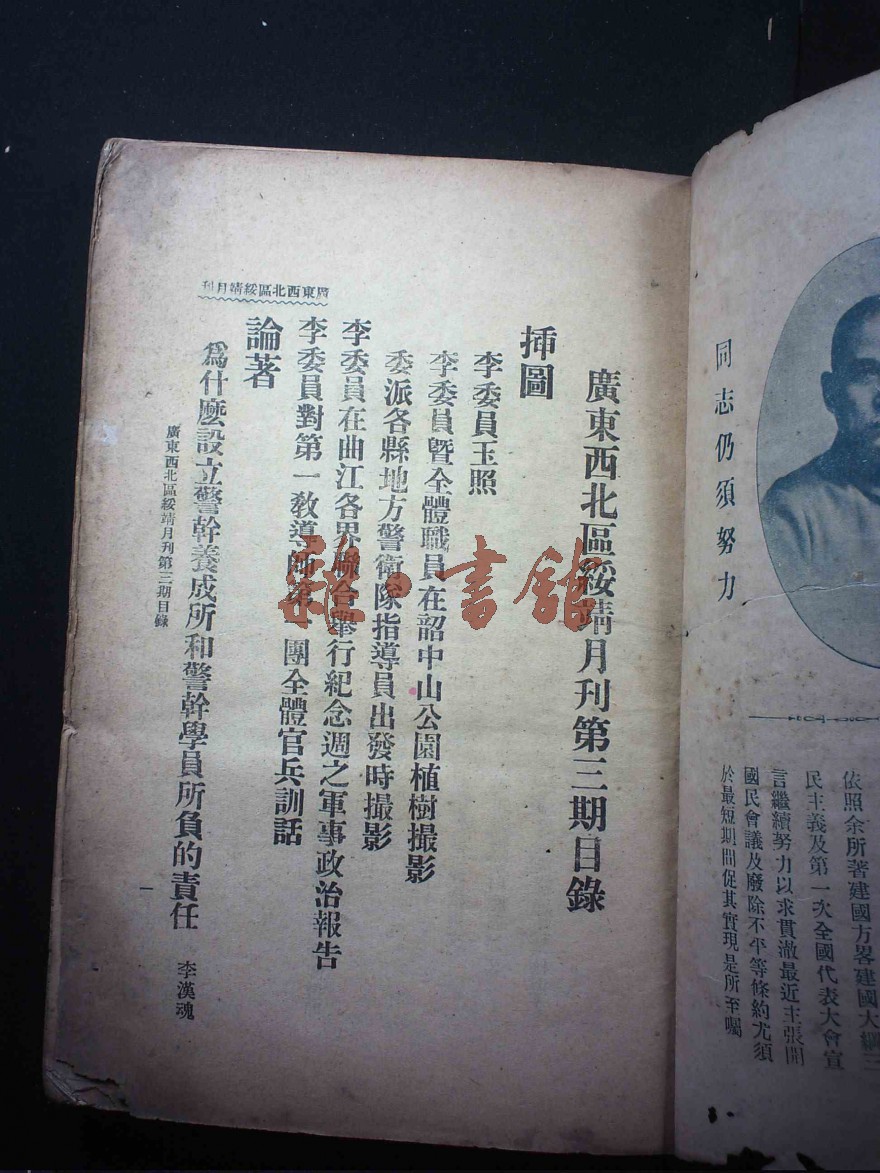 依照余所著建國方畧建國大綱三
民主義及第一次全國代表大會宣
言繼續努力以求貫澈最近主張開
國民會議及廢除不平等條約尤須
於最短期間促其實現是所至囑
同志仍須努力
廣東西北區綏靖月刊第三期目錄
挿圖
李委員玉照
李委員曁全體職員在韶中山公園植樹撮影
委派各縣地方警衛隊指導員出發時撮影
李委員在曲江各界聯合舉行紀念週之軍事政治報告
李委員對第一敎導師 團全體官兵訓話
論著
爲什麽設立警幹養成所和警幹學員所負的責任 李漢魂
廣東西北區綏靖月刊
廣東西北區綏靖月刊第三期目錄
一
雜·書館